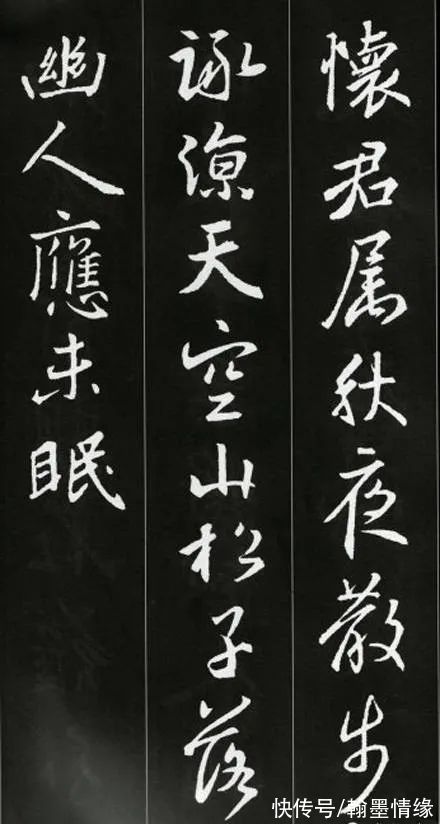 懷君属秋夜散步
詠涼天空山松子落
幽人應未眠
快传号/翰墨情缘